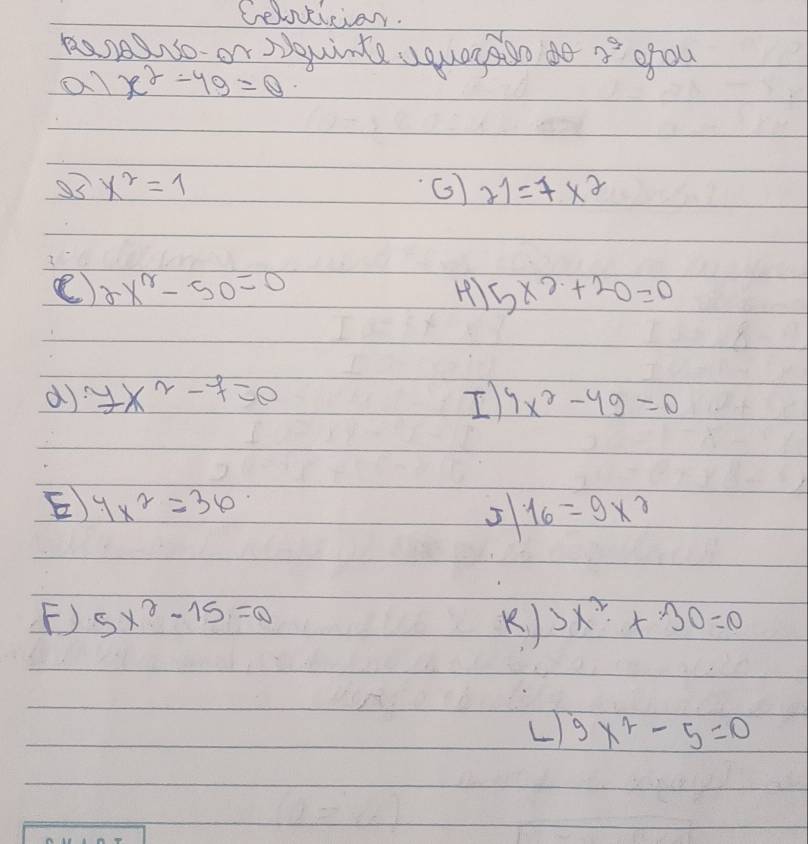 Exercícios.
Resolva os seguinte equações do 2º grau
a) x² - 49 = 0
b) x² = 1
G) 21 = 7x²
C) 2x² - 50 = 0
H) 5x² + 20 = 0
d) 7x² - 7 = 0
I) 4x² - 49 = 0
E) 4x² = 36
J) 16 = 9x²
F) 5x² - 15 = 0
K) 3x² + 30 = 0
L) 9x² - 5 = 0